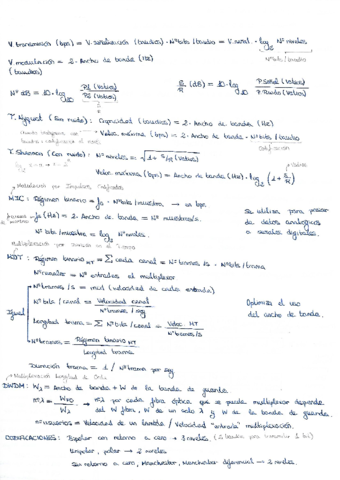 V. transmisión (bps) = V. señalización (baudios) · Nº bits / baudio = V. señal · log₂ Nº niveles
Nº bits / baudio
V. modulación = 2 · Ancho de banda (Hz)
(baudios)
Nº dB = 10 · log₁₀ P1 (vatios) / P2 (vatios)
S/R (dB) = 10 · log₁₀ P. señal (vatios) / P. ruido (vatios)
T. Nyquist (Sin ruido): Capacidad (baudios) = 2 · Ancho de banda (Hz)
Veloc. máxima (bps) = 2 · Ancho de banda · Nº bits / baudio
Codificación
T. Shannon (Con ruido): Nº niveles = √(1 + S/R (vatios))
Veloc. máxima (bps) = Ancho de banda (Hz) · log₂ (1 + S/R)
Modulación por Impulsos Codificados
MIC: Régimen binario = fs · Nº bits / muestra → us bps
fs (Hz) = 2 · Ancho de banda = Nº muestras/s.
Nº bits / muestra = log₂ Nº niveles.
Se utiliza para pasar
de datos analógicos
a señales digitales.
Multiplexación por División en el Tiempo
MDT: Régimen binario MT = Σ cada canal = Nº tramas/s · Nº bits / trama
Nº canales = Nº entradas al multiplexor
Igual
Nº tramas/s = mcd (velocidad de cada entrada)
Nº bits / canal = Velocidad canal / Nº tramas / seg
Longitud trama = Σ Nº bits / canal = Veloc. MT / Nº tramas/s
Nº tramas/s = Régimen binario MT / Longitud trama
Optimiza el uso
del ancho de banda.
Duración trama = 1 / Nº tramas por seg
DWDM: Wλ = Ancho de banda + W de la banda de guarda
nº λ = / Wλ → nº λ por cada fibra óptica que se puede multiplexar depende
del W fibra, W de un solo λ y W de la banda de guarda.
nº usuarios = Velocidad de un lambda / Velocidad "entrada" multiplexación.
CODIFICACIONES: Bipolar con retorno a cero → 3 niveles.
Unipolar, polar → 2 niveles
Sin retorno a cero, Manchester, Manchester diferencial → 2 niveles.